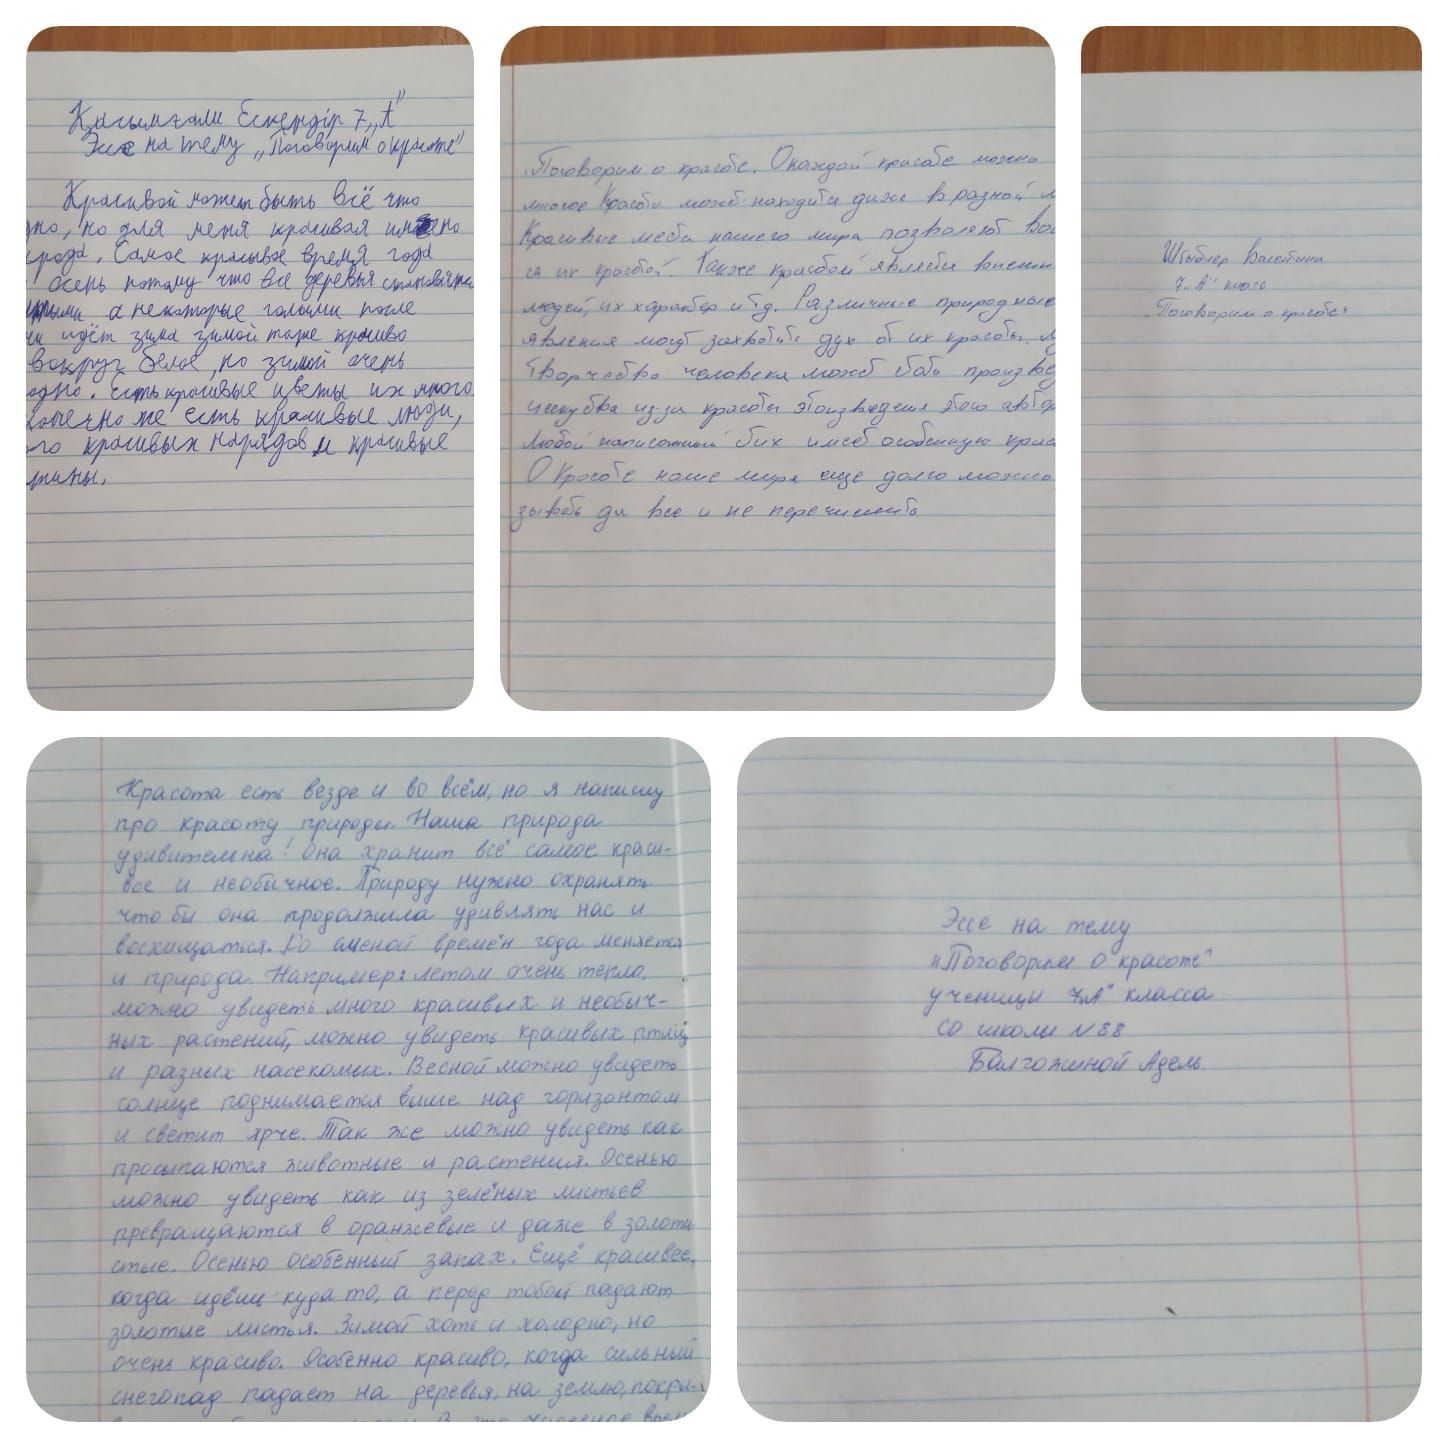 Касымғали Ескендір 7 „А"
Эссе на тему „Поговорим о красоте"
Красивой может быть всё что
но, но для меня красивая именно
рода. Самое красивое время года
осень потому что все деревья становятся
а некоторые голыми после
идёт зима зимой тоже красиво
вокруг белое, но зимой очень
одно. есть красивые цветы их много.
конечно же есть красивые люди,
го красивых нарядов и красивые
тины.
Поговорим о красоте. О каждой красоте можно
многое Красота может находится даже в разной м
Красивые места нашего мира позволяют
ся их красотой. Также красотой является внешн
людей, их характер и т.д. Различные природные
явления могут захватить дух от их красоты.
Творчество человека может быть произве
искуства из-за красоты этого автор
Любой написанный стих имеет особенную крас
О красоте наше мира еще долго можно
зывать да все и не перечислить
Штыблер Валентина
7 „А" класс
„Поговорим о красоте"
Красота есть везде и во всём, но я напишу
про красоту природы. Наша природа
удивительна! Она хранит всё самое краси-
вое и необычное. Природу нужно охранять
что бы она продолжила удивлять нас и
восхищаться. Со сменой времён года меняется
и природа. Например: летом очень тепло,
можно увидеть много красивых и необыч-
ных растений, можно увидеть красивых птиц
и разных насекомых. Весной можно увидеть
солнце поднимается выше над горизонтом
и светит ярче. Так же можно увидеть как
просыпаются животные и растения. Осенью
можно увидеть как из зелёных листьев
превращаются в оранжевые и даже в золоти
стые. Осенью особенный запах. Ещё красивее,
когда идёшь куда то, а перед тобой падают
золотые листья. Зимой хоть и холодно, но
очень красиво. Особенно красиво, когда сильный
снегопад падает на деревья, на землю, покры-
Эссе на тему
"Поговорим о красоте"
ученицы 7„А" класса
со школы №88
Балгожиной Адель.